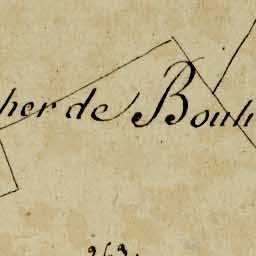 her de Bouh
263.